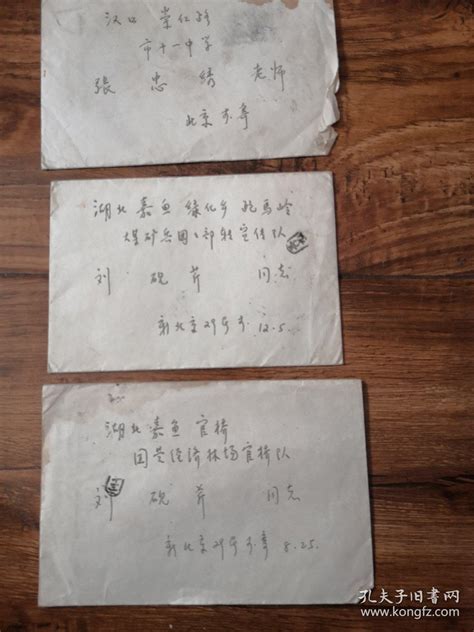 汉口 崇仁路
市十一中学
張 忠 绪 老师
北京 刘寄
湖北 嘉鱼 绿化乡 跑马岭
煤矿兵团 部转宣传队
刘 砚 芹 同志
新北京 12.5.
湖北 嘉鱼 官桥
国营经济林场官桥队
刘 砚 芹 同志
新北京 8.25.
孔夫子旧书网
www.kongfz.com